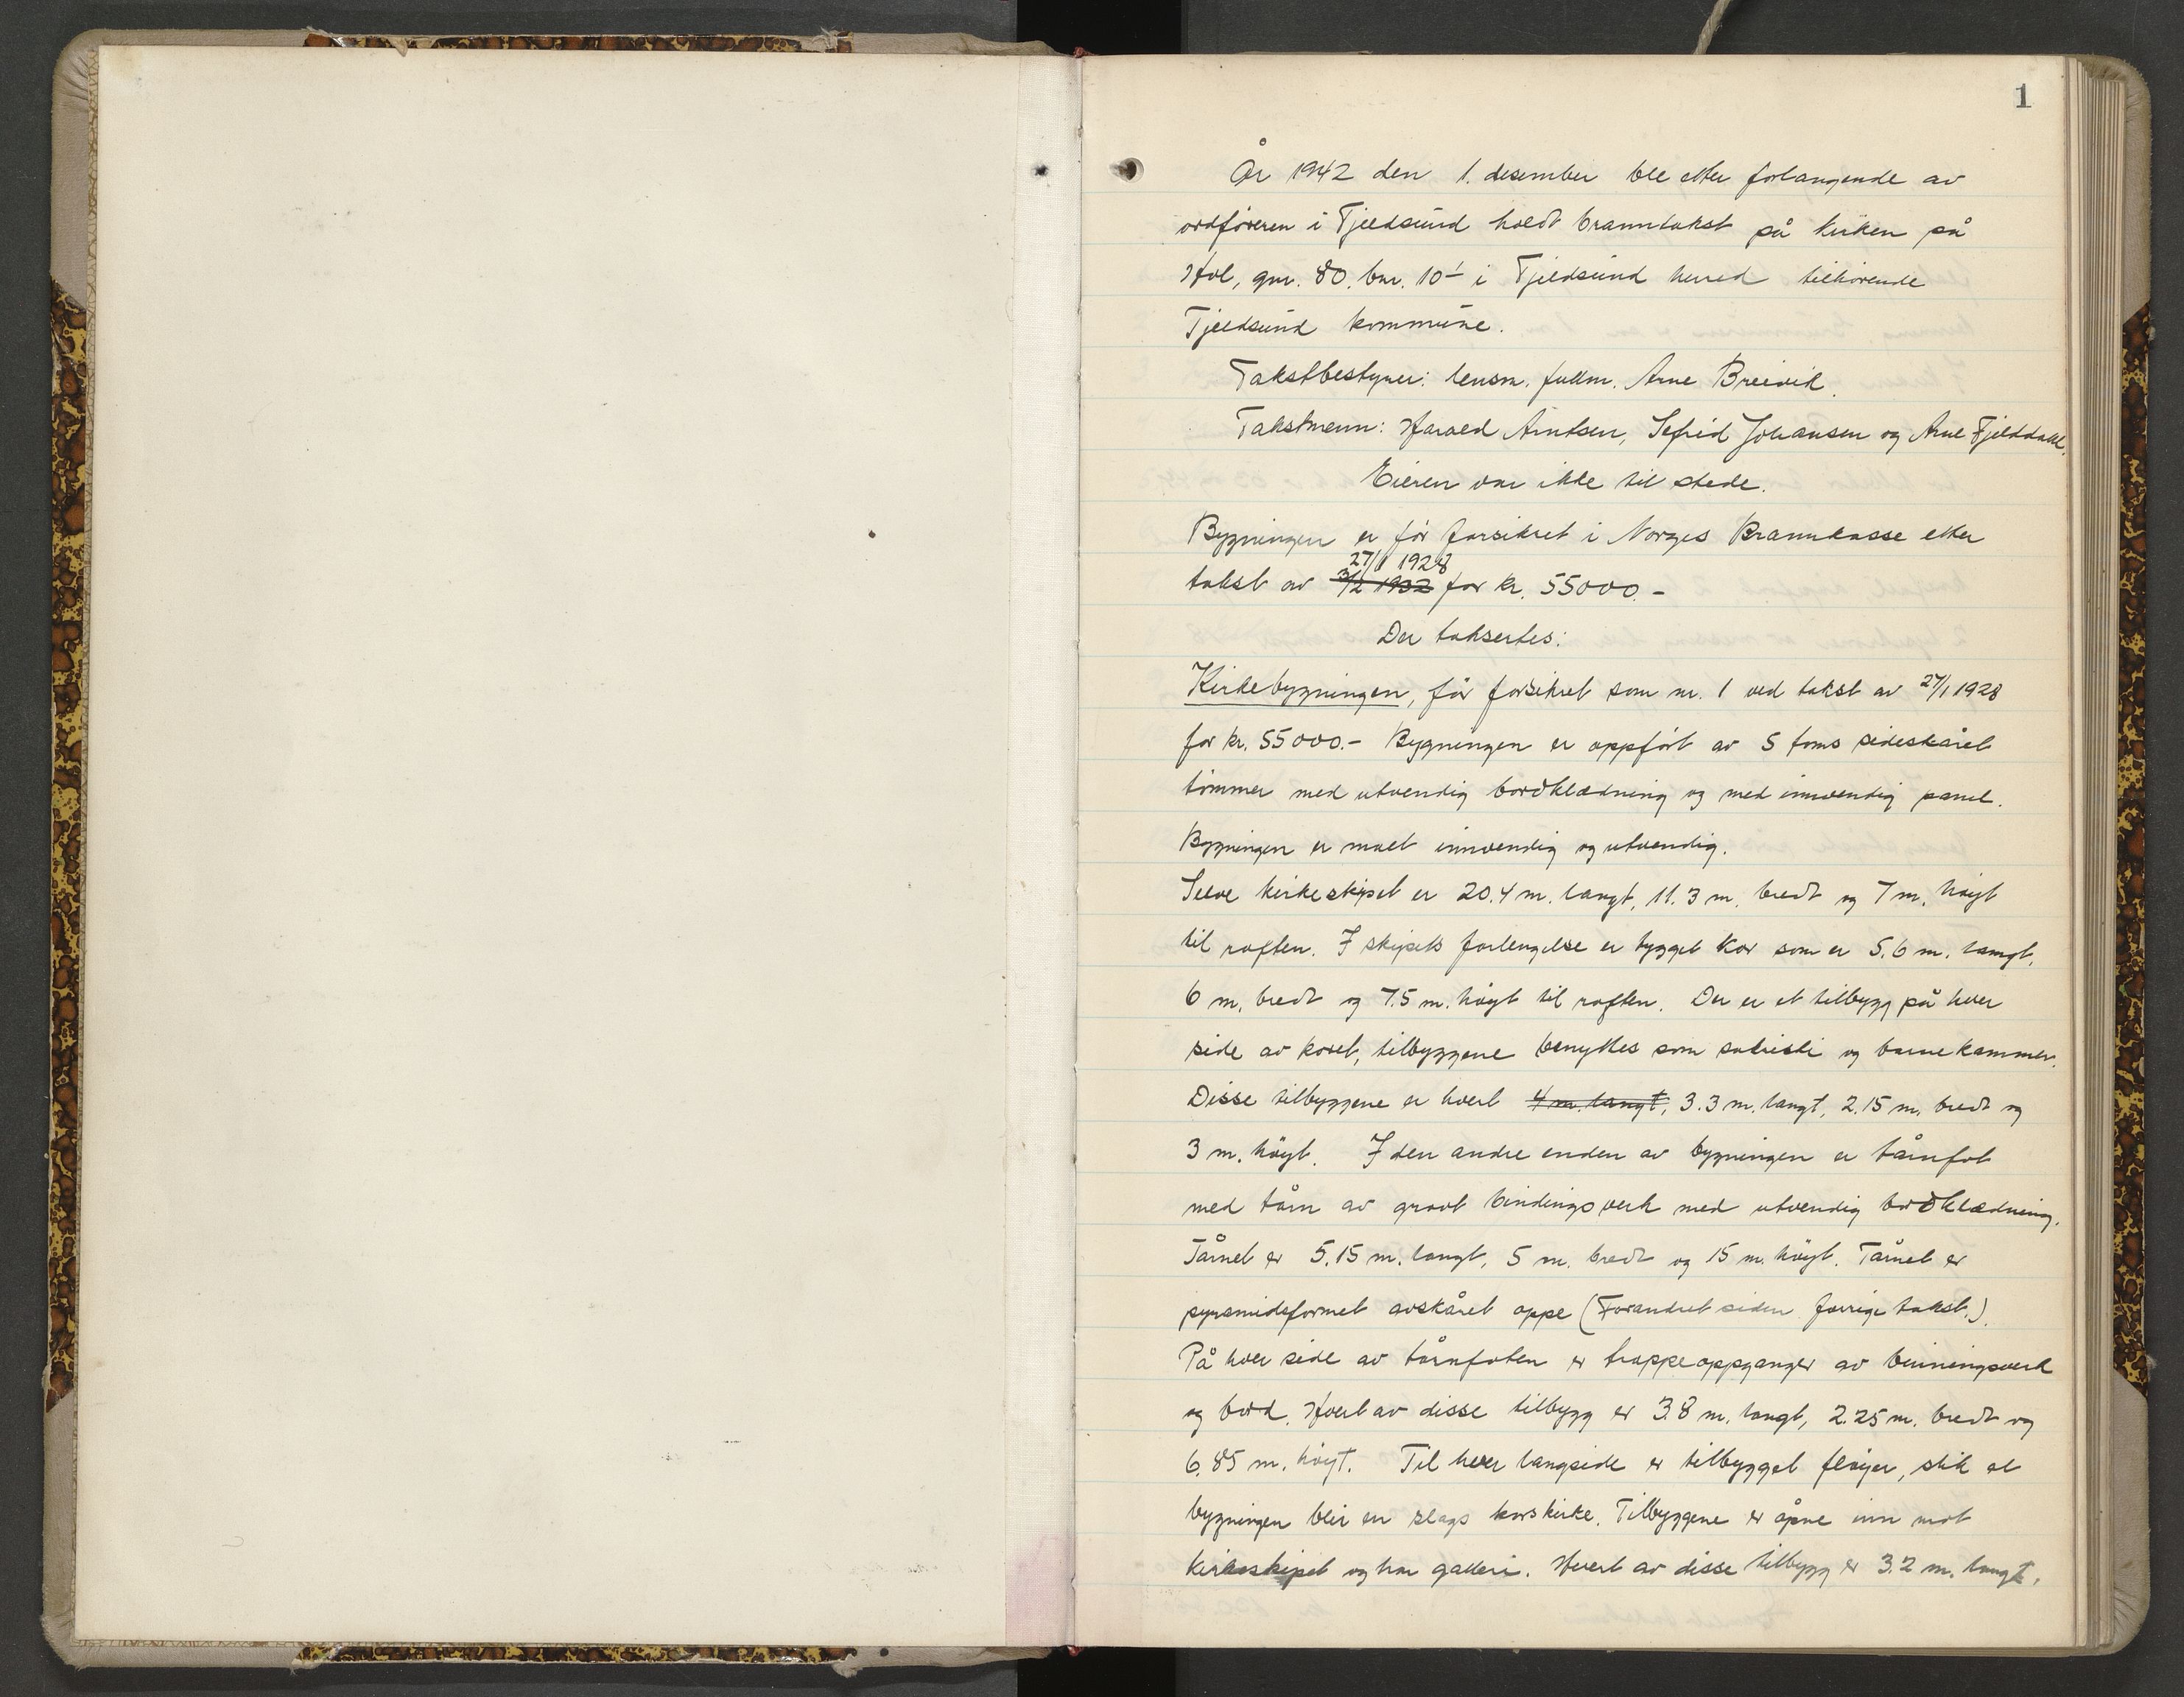 1
År 1942 den 1. desember ble etter forlangende av
ordføreren i Tjeldsund holdt branntakst på kirken på
Hol, gnr. 80. bnr. 10 i Tjeldsund herred tilhørende
Tjeldsund kommune.
Takstbestyrer: lensm. fullm. Arne Breivik.
Takstmenn: Harald Arntsen, Sefrid Johansen og Arne Fjelddahl.
Eieren var ikke til stede.
Bygningen er før forsikret i Norges Brannkasse etter
27/1 1928
takst av 3/2 1932 for kr. 55000.-
Der taksertes:
Kirkebygningen, før forsikret som nr. 1 ved takst av 27/1 1928
for kr. 55000.- Bygningen er oppført av 5 toms sideskåret
tømmer med utvendig bordklædning og med innvendig panel.
Bygningen er malt innvendig og utvendig.
Selve kirkeskipet er 20.4 m. langt, 11.3 m. bredt og 7 m. høyt
til raften. I skipets forlengelse er bygget kor som er 5.6 m. langt,
6 m. bredt og 7.5 m. høyt til raften. Der er et tilbygg på hver
side av koret, tilbyggene benyttes som sakristi og barnekammer.
Disse tilbyggene er hvert 4 m. langt, 3.3 m. langt, 2.15 m. bredt og
3 m. høyt. I den andre enden av bygningen er tårnfot
med tårn av grovt bindingsverk med utvendig bordklædning.
Tårnet er 5.15 m. langt, 5 m. bredt og 15 m. høyt. Tårnet er
pyramideformet avskåret oppe (Forandret siden forrige takst.).
På hver side av tårnfoten er trappeoppganger av binningsverk
og bord. Hvert av disse tilbygg er 3.8 m. langt, 2.25 m. bredt og
6.85 m. høyt. Til hver langside er tilbygget fløyer, slik at
bygningen blir en slags korskirke. Tilbyggene er åpne inn mot
kirkeskipet og har galleri. Hvert av disse tilbygg er 3.2 m. langt,